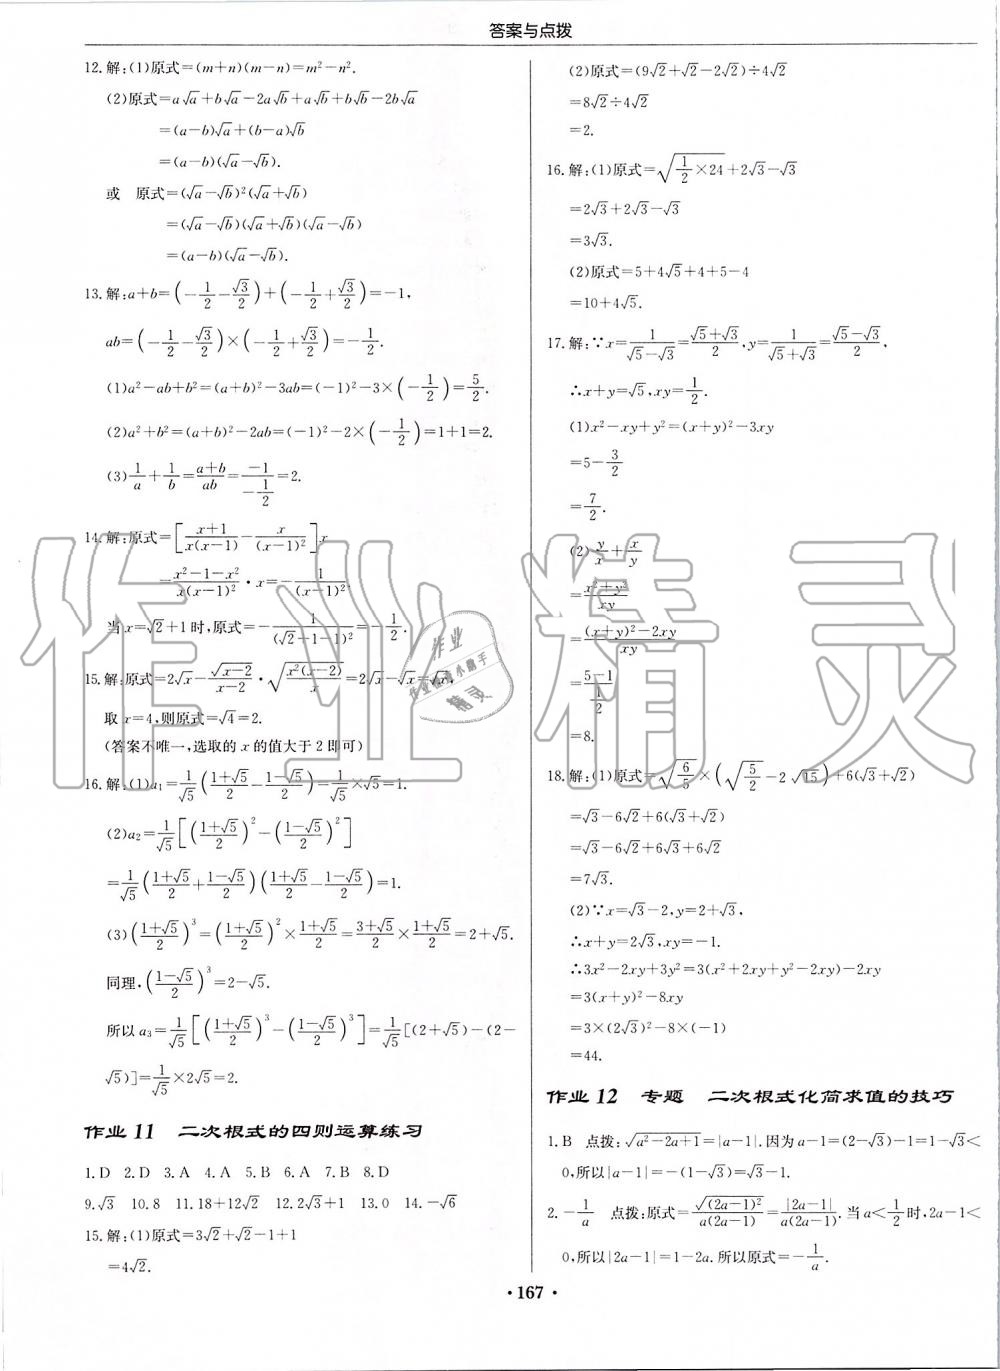 答案与点拨
12.解:(1)原式=(m+n)(m-n)=m²-n².
(2)原式=a√a+b√a-2a√b+a√b+b√b-2b√a
=(a-b)√a+(b-a)√b
=(a-b)(√a-√b).
或 原式=(√a-√b)²(√a+√b)
=(√a-√b)(√a+√b)(√a-√b)
=(a-b)(√a-√b).
13.解:a+b=(-1/2-√3/2)+(-1/2+√3/2)=-1,
ab=(-1/2-√3/2)×(-1/2+√3/2)=-1/2.
(1)a²-ab+b²=(a+b)²-3ab=(-1)²-3×(-1/2)=5/2.
(2)a²+b²=(a+b)²-2ab=(-1)²-2×(-1/2)=1+1=2.
(3)1/a+1/b=(a+b)/ab=-1/(-1/2)=2.
14.解:原式=[(x+1)/(x(x-1))-x/(x-1)²]x
=(x²-1-x²)/(x(x-1)²)·x=-1/(x-1)²
当x=√2+1时,原式=-1/(√2+1-1)²=-1/2.
15.解:原式=2√x-√(x-2)/(x-2)·√(x²(x-2)/x)=2√x-√x=√x,
取x=4,则原式=√4=2.
(答案不唯一,选取的x的值大于2即可)
16.解:(1)a₁=1/√5((1+√5)/2-(1-√5)/2)=1/√5×√5=1.
(2)a₂=1/√5[((1+√5)/2)²-((1-√5)/2)²]
=1/√5((1+√5)/2+(1-√5)/2)((1+√5)/2-(1-√5)/2)=1.
(3)((1+√5)/2)³=((1+√5)/2)²×(1+√5)/2=(3+√5)/2×(1+√5)/2=2+√5.
同理,((1-√5)/2)³=2-√5.
所以a₃=1/√5[((1+√5)/2)³-((1-√5)/2)³]=1/√5[(2+√5)-(2-
√5)]=1/√5×2√5=2.
作业11 二次根式的四则运算练习
1.D 2.D 3.A 4.A 5.D 6.A 7.B 8.D
9.√3 10.8 11.18+12√2 12.2√3+1 13.0 14.-√6
15.解:(1)原式=3√2+√2-1+1
=4√2.
(2)原式=(9√2+√2-2√2)÷4√2
=8√2÷4√2
=2.
16.解:(1)原式=√(1/2×24)+2√3-√3
=2√3+2√3-√3
=3√3.
(2)原式=5+4√5+4+5-4
=10+4√5.
17.解:∵x=1/(√5-√3)=(√5+√3)/2,y=1/(√5+√3)=(√5-√3)/2,
∴x+y=√5,xy=1/2.
(1)x²-xy+y²=(x+y)²-3xy
=5-3/2
=7/2.
(2)y/x+x/y
=(x²+y²)/xy
=((x+y)²-2xy)/xy
=(5-1)/(1/2)
=8.
18.解:(1)原式=√(6/5)×(√(5/2)-2√15)+6(√3+√2)
=√3-6√2+6(√3+√2)
=√3-6√2+6√3+6√2
=7√3.
(2)∵x=√3-2,y=2+√3,
∴x+y=2√3,xy=-1.
∴3x²-2xy+3y²=3(x²+2xy+y²-2xy)-2xy
=3(x+y)²-8xy
=3×(2√3)²-8×(-1)
=44.
作业12 专题 二次根式化简求值的技巧
1.B 点拨:√(a²-2a+1)=|a-1|.因为a-1=(2-√3)-1=1-√3<
0,所以|a-1|=-(1-√3)=√3-1.
2.-1/a 点拨:原式=√((2a-1)²)/(a(2a-1))=|2a-1|/(a(2a-1)).当a<1/2时,2a-1<
0,所以|2a-1|=1-2a.所以原式=-1/a.
·167·
作业精灵